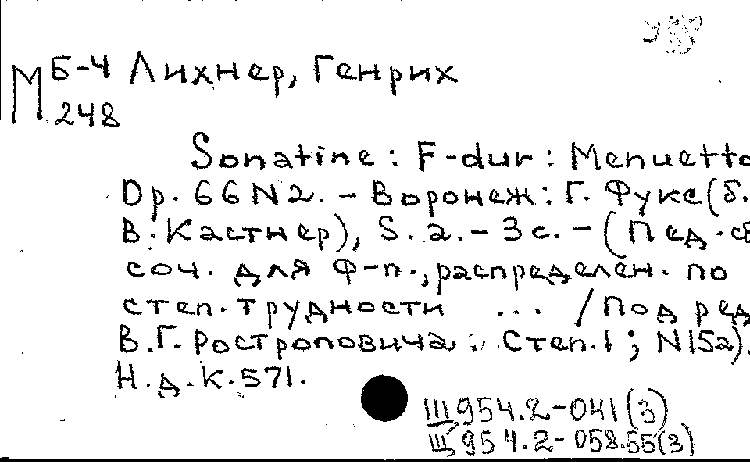 М Б-4 Лихнер, Генрих
248
Sonatine: F-dur: Menuetto
Op. 66 N2. - Воронеж: Г. Фукс (б.
В. Кастнер), S. a. - 3 с. - (Пед. сб
соч. для ф-п., распределен. по
степ. трудности ... / Под ред
В.Г. Ростроповича: Степ. 1; N15a).
Н.д.К.571.
Щ954.2-041(3)
Щ954.2-058.55(3)